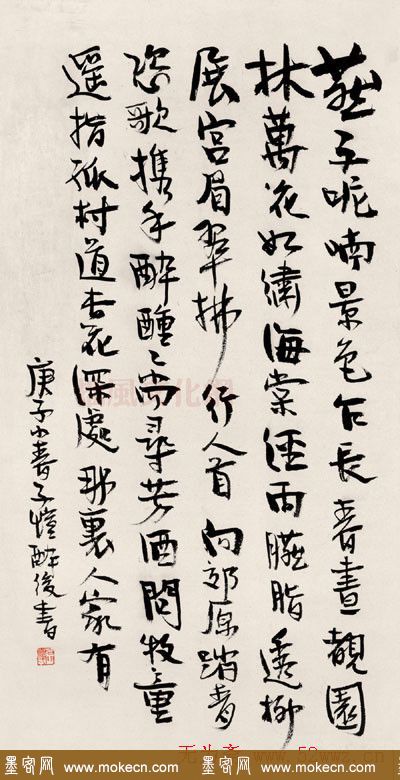 燕子呢喃景色乍長春晝覩園
林萬花如繡海棠經雨臙脂透柳
展宮眉翠拂行人首向郊原踏青
恣歌攜手醉醺〻尚尋芳酒問牧童
遥指孤村道杏花深處那裏人家有
庚子小春子愷醉後書
墨客网 www.mokecn.com 墨客网 www.mokecn.com